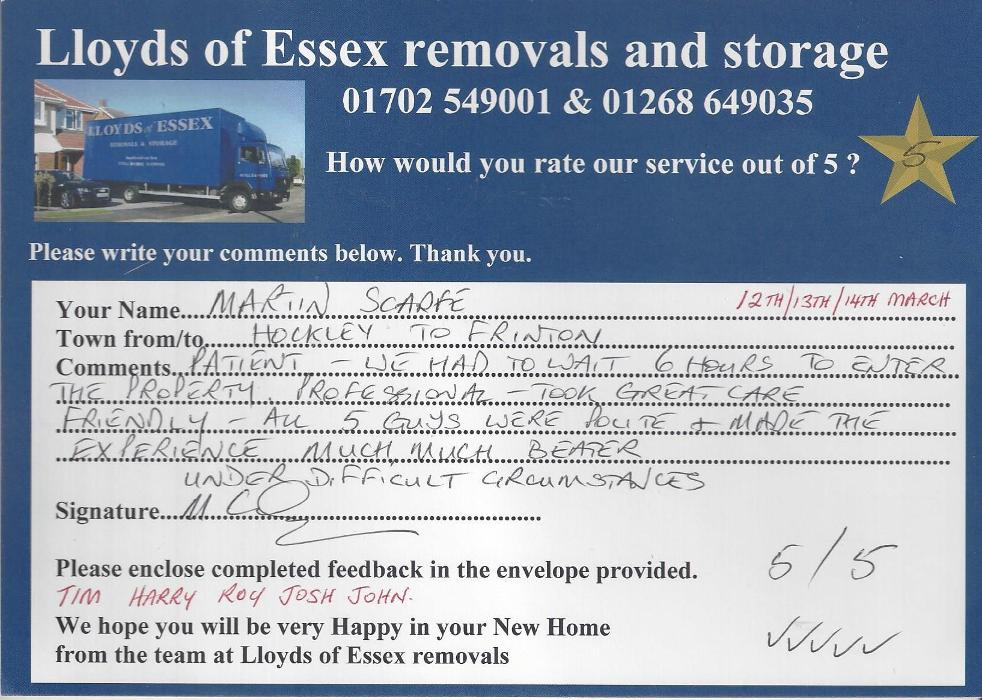 Lloyds of Essex removals and storage
LLOYDS of ESSEX
REMOVALS & STORAGE
01702 549001 & 01268 649035
How would you rate our service out of 5 ?
5
Please write your comments below. Thank you.
Your Name....MARTIN SCARFE 12TH/13TH/14TH MARCH
Town from/to....HOCKLEY TO FRINTON
Comments..PATIENT - WE HAD TO WAIT 6 HOURS TO ENTER
THE PROPERTY. PROFESSIONAL - TOOK GREAT CARE
FRIENDLY - ALL 5 GUYS WERE POLITE & MADE THE
EXPERIENCE MUCH, MUCH BEATER
UNDER DIFFICULT CIRCUMSTANCES
Signature....
Please enclose completed feedback in the envelope provided. 5/5
TIM HARRY ROY JOSH JOHN.
We hope you will be very Happy in your New Home
from the team at Lloyds of Essex removals